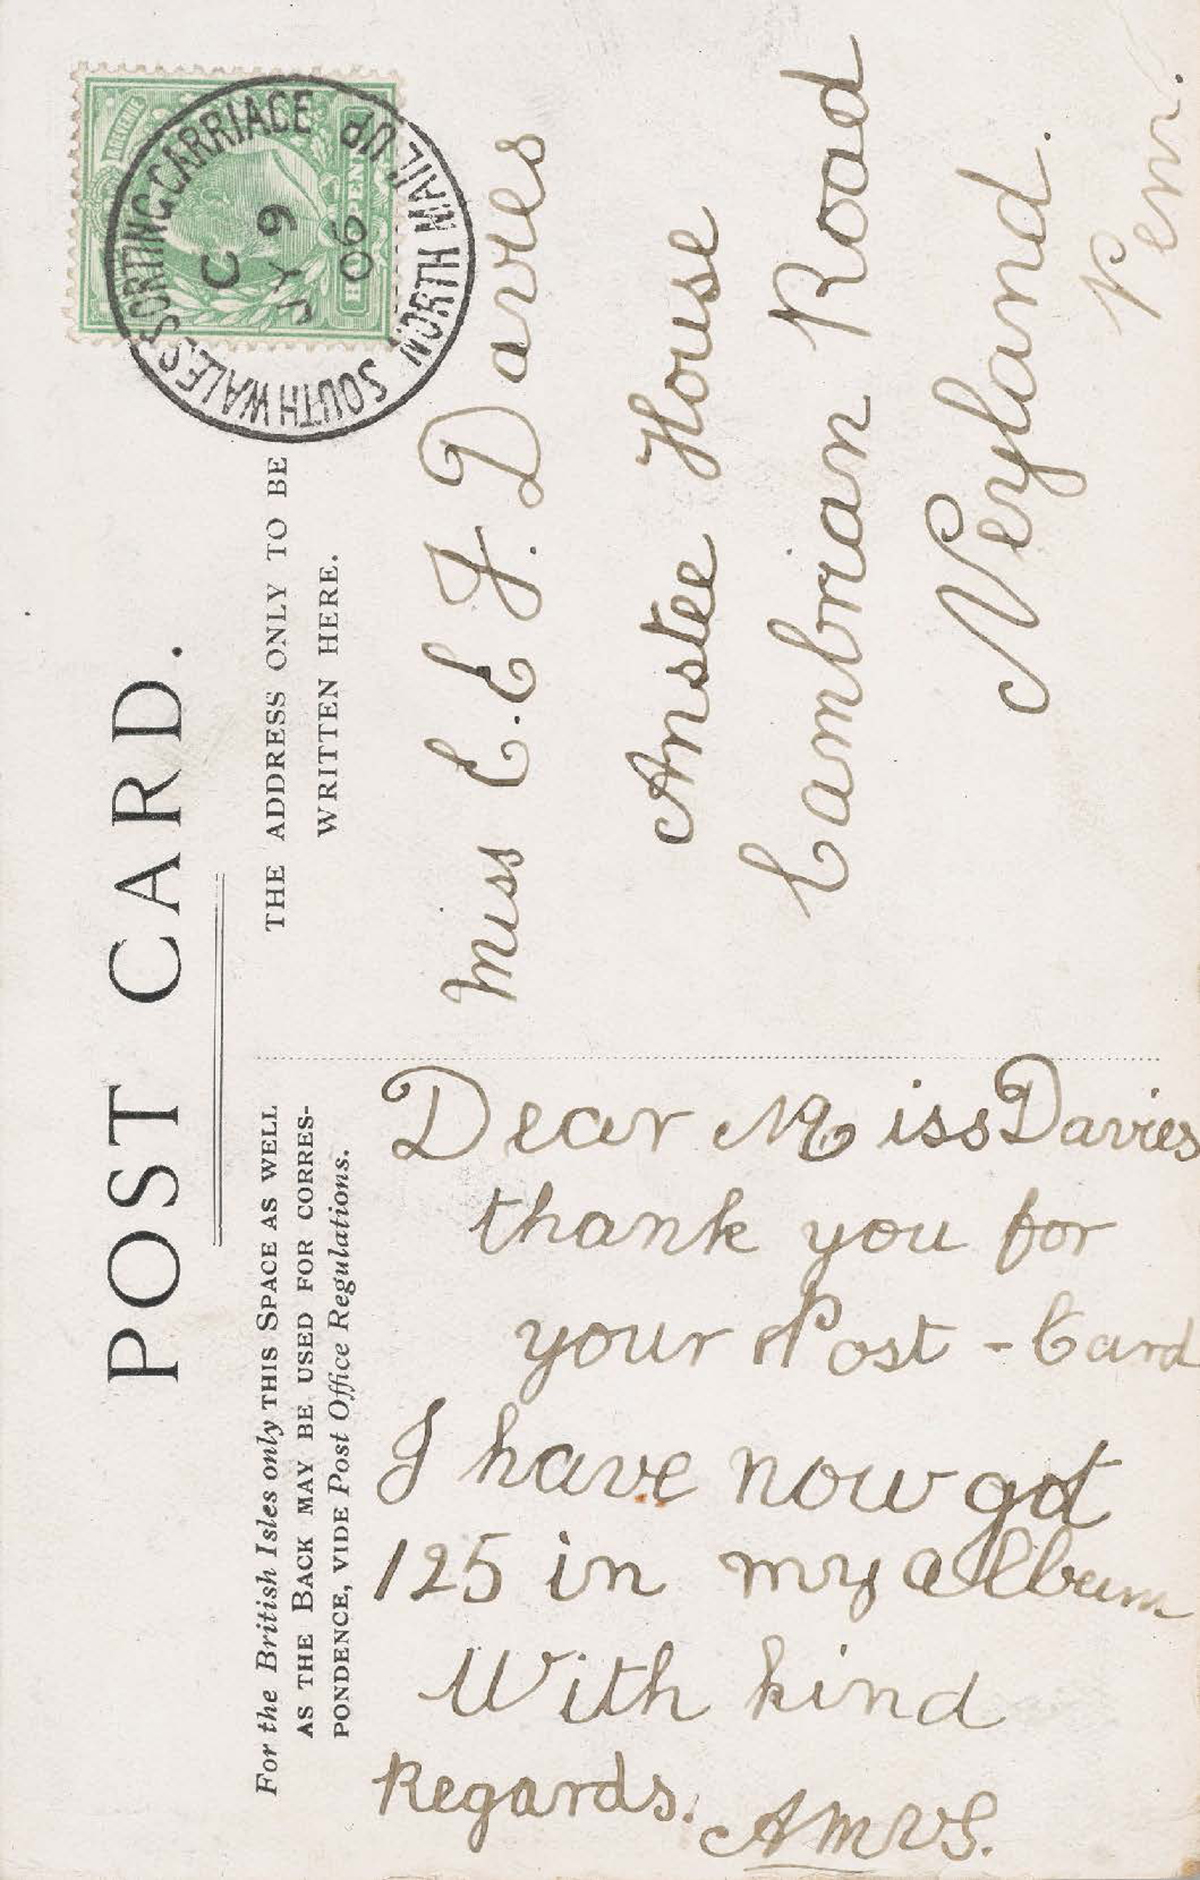 POST CARD.
For the British Isles only THIS SPACE AS WELL
AS THE BACK MAY BE USED FOR CORRES-
PONDENCE, VIDE Post Office Regulations.
THE ADDRESS ONLY TO BE
WRITTEN HERE.
SOUTH WALES SORTING CARRIAGE
NORTH MAIL UP
C
JY 9
06
Dear Miss Davies
thank you for
your Post - Card
I have now got
125 in my album
With kind
Regards.
AMVS.
Miss E. E. J. Davies
Anstee House
Cambrian Road
Neyland.
Pem.